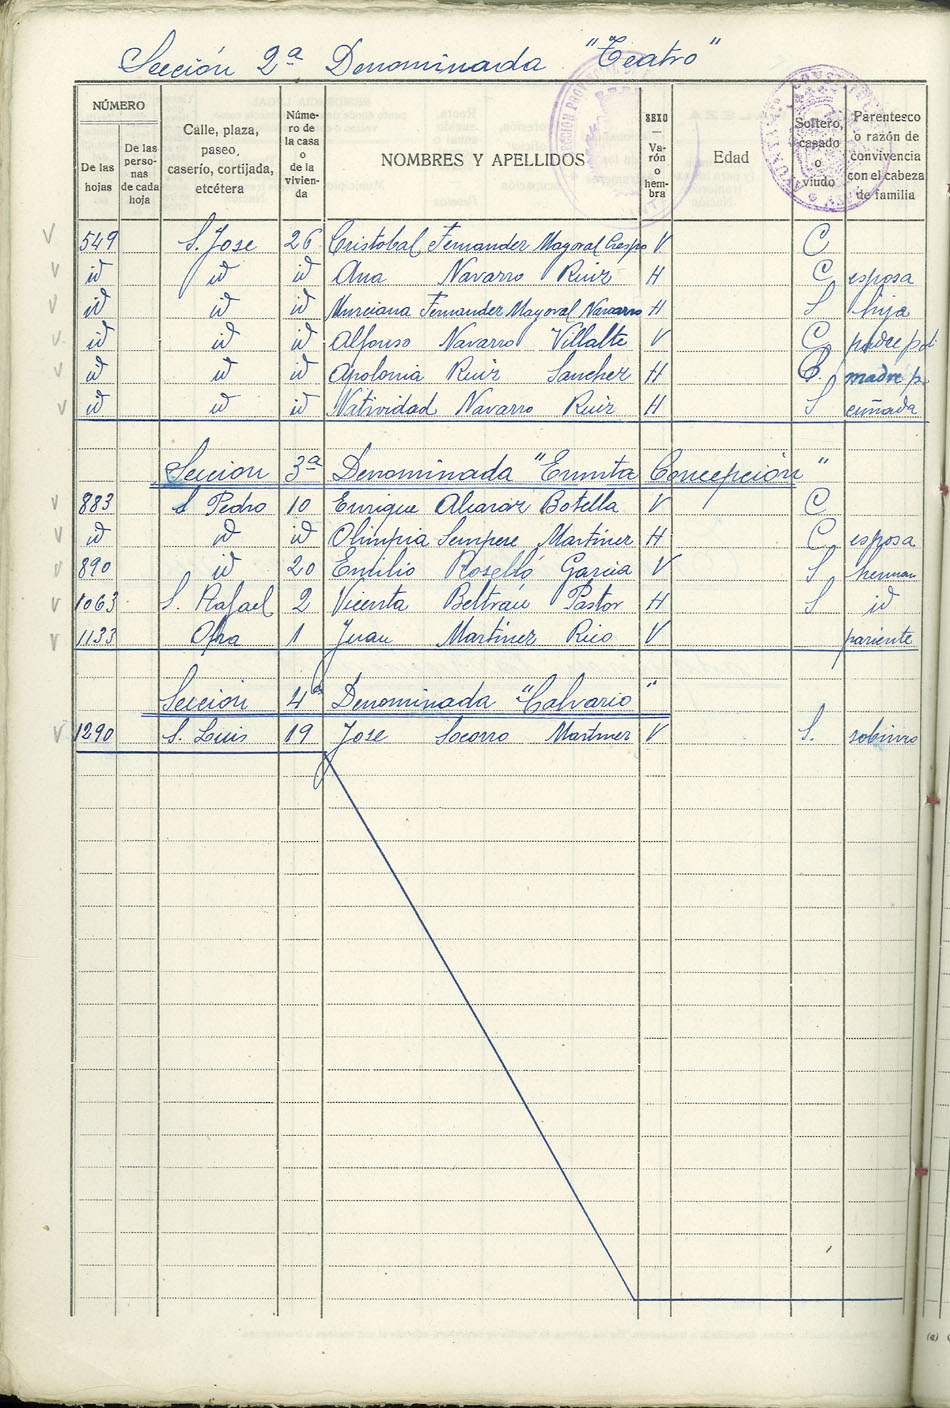 Sección 2ª Denominada "Teatro"
NÚMERO
De las hojas
De las perso- nas de cada hoja
Calle, plaza, paseo, caserío, cortijada, etcétera
Núme- ro de la casa o de la vivien- da
NOMBRES Y APELLIDOS
SEXO — Va- rón o hem- bra
Edad
Soltero, casado o viudo
Parentesco o razón de convivencia con el cabeza de familia
549 S. Jose 26 Cristobal Fernandez Mayoral Crespo V C
id id id Ana Navarro Ruiz H C esposa
id id id Murciana Fernandez Mayoral Navarro H S hija
id id id Alfonso Navarro Villalte V C padre pol
id id id Apolonia Ruiz Sanchez H C. madre p.
id id id Natividad Navarro Ruiz H S cuñada
Sección 3ª Denominada "Ermita Concepción"
883 S Pedro 10 Enrique Alcaraz Botella V C
id id id Olimpia Sempere Martinez H C esposa
890 id 20 Emilio Roselló Garcia V S herman
1063 S. Rafael 2 Vicenta Beltrán Pastor H S id
1133 Olra 1 Juan Martinez Rico V pariente
Sección 4ª Denominada "Calvario"
1290 S. Luis 19 Jose Socorro Martinez V S. sobrino